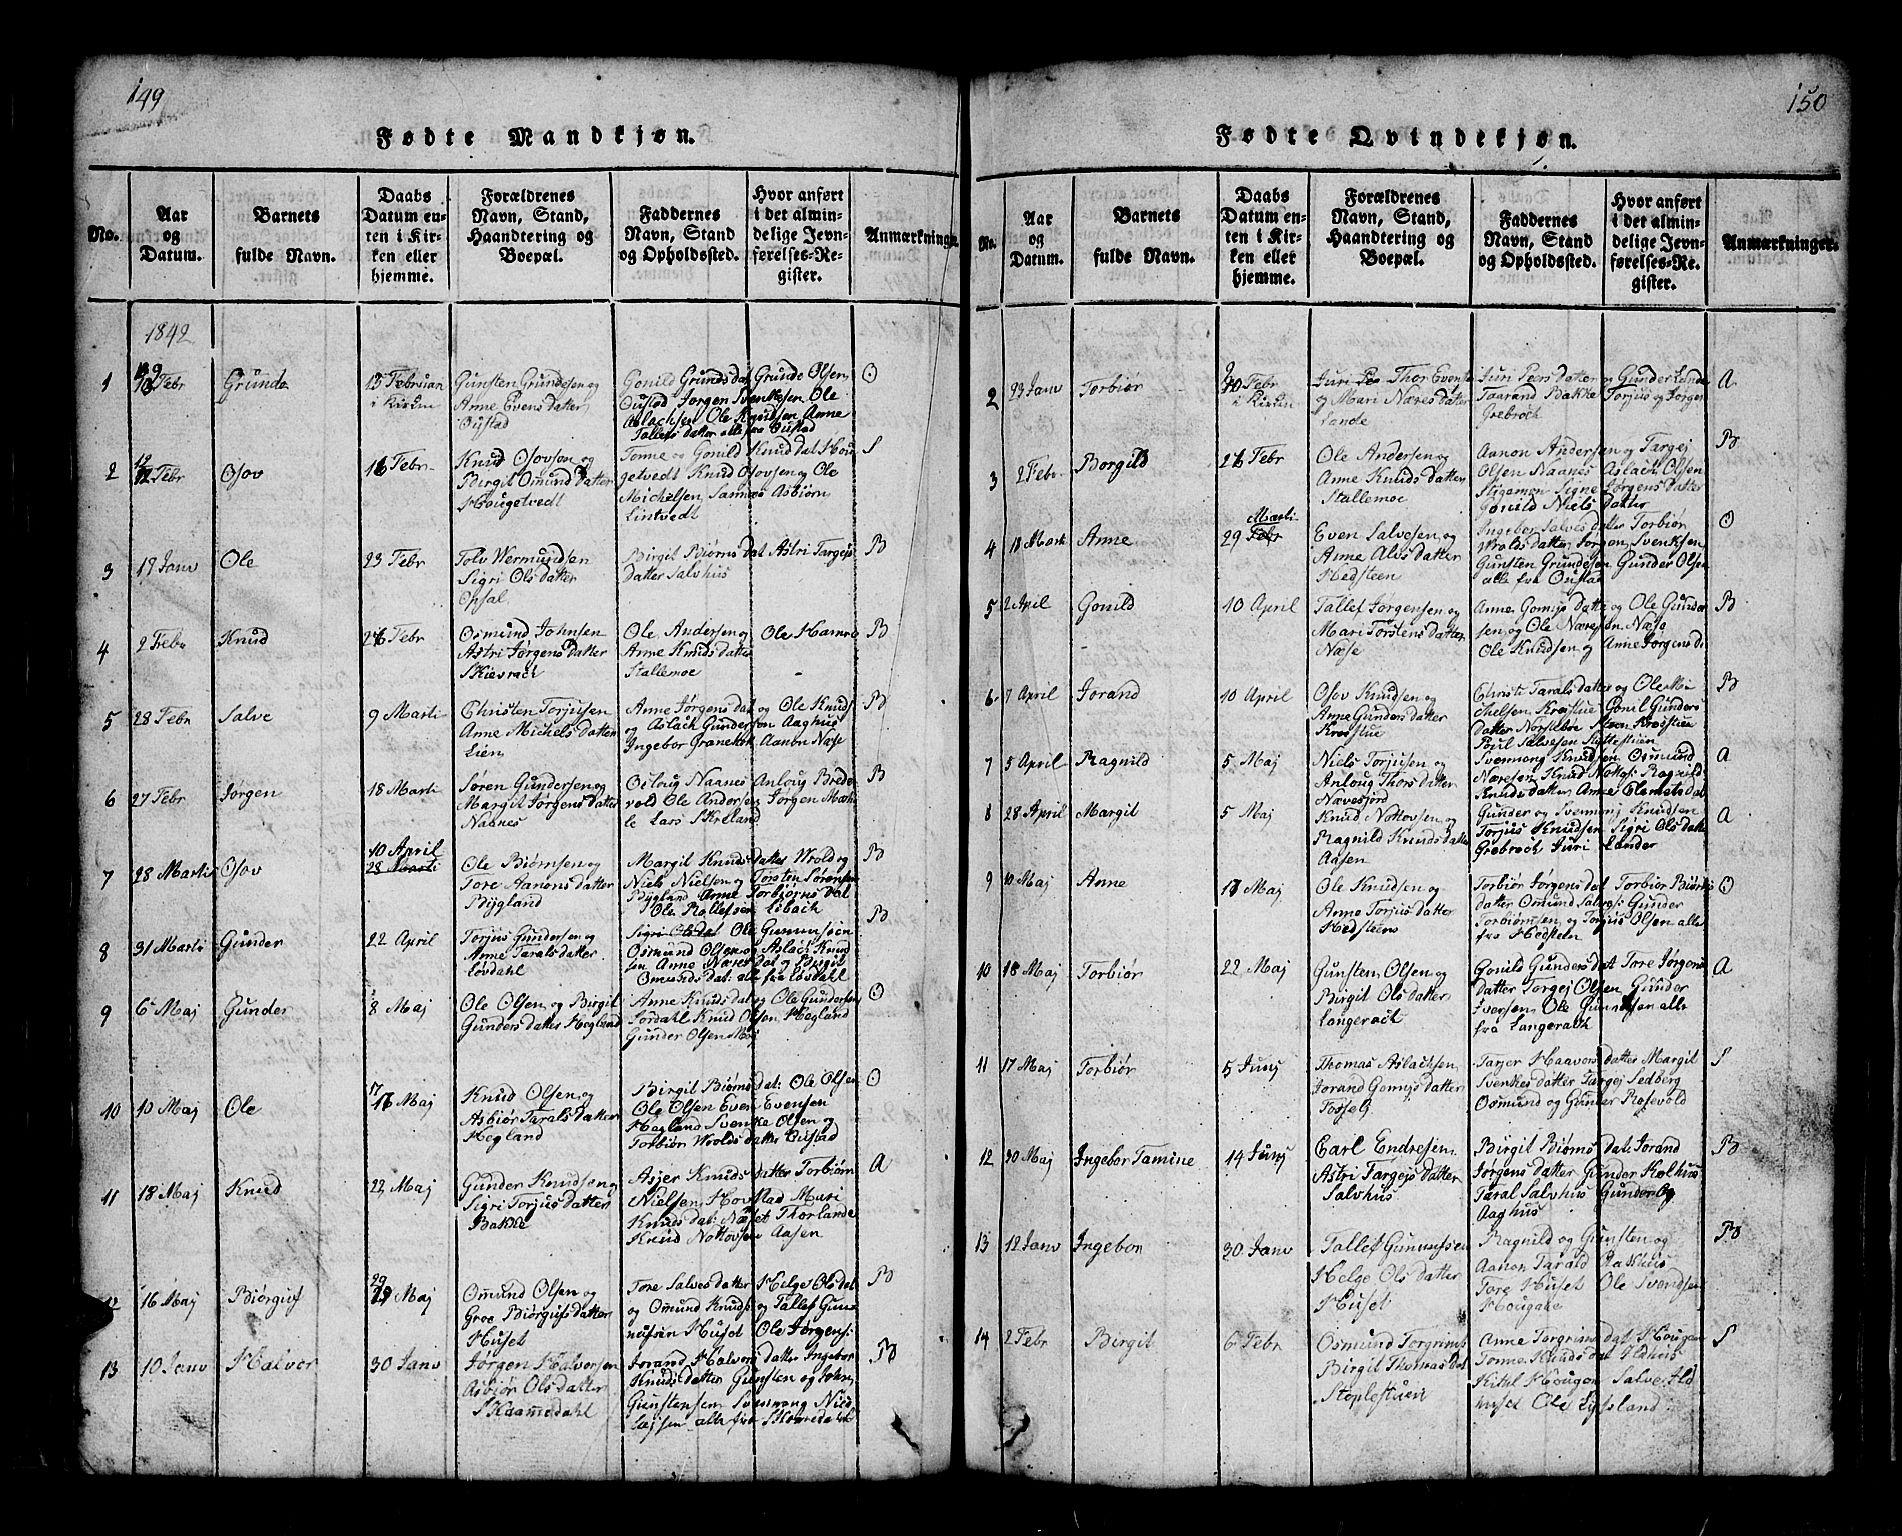 149
Fødte Mandkjøn.
No.
Aar
og
Datum.
Barnets
fulde Navn.
Daabs
Datum en-
ten i Kir-
ken eller
hjemme.
Forældrenes
Navn, Stand,
Haandtering og
Boepæl.
Faddernes
Navn, Stand
og Opholdssted.
Hvor anført
i det almin-
delige Jevn-
førelses-Re-
gister.
Anmærkninger.
1842
1
Febr
Grunde
13 Februari
i Kirken
Gunsten Grundesen og
Anne Evensdatter
Oustad
Gonild Grundsdat Grunde Olsen
Oustad Jørgen Svenkesen Ole
Aslachsen Ole Knudsen Anne
Tallefsdatter alle fra Oustad
O
2
12 Febr
Osov
16 Febr
Knud Osovson og
Birgit Osmundsdatter
Hougetvedt
Tonne og Gonild Knudsdat Hou
getvedt Knud Osovsen og Ole
Michelsen Samnæs Asbiørn
Lintvedt
S
3
19 Janv
Ole
23 Febr
Tolv Wermundsen
Sigri Olsdatter
Opsal
Birgit Biørnsdat Astri Targejs
datter Salvhus
B
4
2 Febr
Knud
26 Febr
Osmund Johnsen
Astri Jørgensdatter
Skievrach
Ole Andersen og Ole Hamre
Anne Knudsdatter
Stallemoe
B
5
28 Febr
Salve
9 Marti
Christen Torjusen
Anne Michelsdatter
Lien
Anne Jørgensdat og Ole Knuds
og Aslach Gundersen Aaghus
Ingebor Granehok Aanon Næse
B
6
27 Febr
Jørgen
18 Marti
Søren Gundersen og
Margit Jørgensdatter
Naanes
Osloug Naanes Anloug Brede
vold Ole Andersen Jørgen
le Lars Skreland
B
7
28 Marti
Osov
10 April
28 Marti
Ole Biørnsen og
Tore Aanensdatter
Bygland
Margit Knudsdatter Wrold og
Niels Nielsen og Torsten Sørensen
Bygland Anne Torbiørnsdat
Ole Rollefsen Libach
B
8
31 Marti
Gunder
22 April
Torjus Gundersen og
Anne Taralsdatter
Lovdahl
Sigri Olsdat Ole Gunnufsen
Osmund Olsen og Aslach Knud
sen Anne Næresdat og Birgit
Omundsdat: alle fra Lovdahl
B
9
6 Maj
Gunder
8 Maj
Ole Olsen og Birgit
Gundersdatter Hegland
Anne Knudsdat og Ole Gundersen
Jordahl Knud Olsen Hegland
Gunder Olsen Moj
O
10
10 Maj
Ole
17
Maj
Knud Olsen og
Asbiør Taralsdatter
Hegland
Birgit Biørnsdat: Ole Olsen
Ole Olsen Even Evensen
Hegland Svenke Olsen og
Torbiør Wroldsdatter Oustad
O
11
18 Maj
Knud
22 Maj
Gunder Knudsen og
Sigri Torjusdatter
Bakke
Asjer Knudsdatter Torbiørn
Nielsen Hovstad Mari
Knudsdat: Næset Thorlande
Knud Nottovsen Aasen
A
12
16 Maj
Biørguf
29
Maj
Omund Olsen og
Groe Biørgufsdatter
Huset
Tore Salvesdatter Helge Olsdat
og Omund Knuds og Tallef Gun
nufsen Huset Ole Jørgens:
B
13
10 Janv
Halvor
30 Janv
Jørgen Halvorsen
Asbiør Olsdatter
Skaamedahl
Jorand Halvorsdatter Ingebor
Knudsdatter Gunsten og John
Gunstensen Svennung Niel
alle fra Skomedahl
B
150
Fødte Qvindekjøn.
No.
Aar
og
Datum.
Barnets
fulde Navn.
Daabs
Datum en-
ten i Kir-
ken eller
hjemme.
Forældrenes
Navn, Stand,
Haandtering og
Boepæl.
Faddernes
Navn, Stand
og Opholdssted.
Hvor anført
i det almin-
delige Jevn-
førelses-Re-
gister.
Anmærkninger.
2
23 Janv
Torbiør
20 Febr
i Kirken
Juri Pes Thor Evensen
og Mari Næresdatter
Lande
Juri Peersdatter Gunder Lande
Taarand Bakke Torjus og Jørgen
Grebrock
A
3
2 Febr
Borgild
26 Febr
Ole Andersen og
Anne Knudsdatter
Stallemoe
Aanon Andersen og Targej
Olsen Naanes Aslach Olsen
Stigemon Signe Jørgensdatter
Gonild Nielsdatter
B
4
18 Marti
Anne
Marti
29 Febr
Even Salvesen og
Anne Alvsdatter
Hedsteen
Ingebor Salvesdatter Torbiør
Wroldsdatter Jørgen Svenksen
Gunsten Grundesen Gunder Olsen
alle fra Oustad
O
5
2 April
Gonild
10 April
Tallef Jørgensen og
Mari Torstensdatter
Næse
Anne Gomysdatter og Ole Gunder
sen og Ole Næresen Næse
Ole Knudsen og Anne Jørgensd
B
6
7 April
Jorand
10 April
Osov Knudsen og
Anne Gundersdatter
Krostue
Christi Taralsdatter og Ole Mi
chelsen Krostue Gonil Gunders
datter Krostue
Poul Salvesen
B
7
5 April
Ragnild
5 Maj
Niels Torjusen og
Anloug Thorsdatter
Nævesfjord
Svennung Knudsen Osmund
Næresen Knud Nottof: Ragnild
Knudsdatter Anne
A
8
28 April
Margit
5 Maj
Knud Nottovsen og
Ragnild Knudsdatter
Aasen
Gunder og Svennung Knudsen
Torjus Knudsen Sigri Olsdatter
Grebrock Juri Lander
A
9
10 Maj
Anne
17 Maj
Ole Knudsen og
Anne Torjusdatter
Hedsteen
Torbiør Jørgensdat Torbiør Biørns
datter Omund Salves: Gunder
Torbiørnsen og Torjus Olsen alle
fra Hedsteen
O
10
18 Maj
Torbiør
22 Maj
Gunsten Olsen og
Birgit Olsdatter
Langerack
Gonild Gundersdat Tore Jørgens
datter Torgej Olsen Gunder
Iversen Ole Gunnufsen alle
fra Langerack
A
11
17 Maj
Torbiør
5 Junj
Thomas Aslachsen
Jorand Gomysdatter
Fosselj
Tarjer Haavorsdatter Margit
Svenkesdatter Targej Sedberg
Osmund og Gunder Rosevold
S
12
30 Maj
Ingebor Tamine
14 Junj
Carl Endresen
Astri Targejsdatter
Salvhus
Birgit Biørnsdat: Jorand
Jørgensdatter Gunder Kolhus
Taral Salvhus Gunder Og
Aaghus
B
13
12 Janv
Ingebor
30 Janv
Tallef Gunnufsen
Helge Olsdatter
Huset
Ragnild og Gunsten og
Aanon Tarald
Tore Huset Ole Svendsen
Hougane
B
14
2 Febr
Birgit
6 Febr
Osmund Torgrims
Birgit Thomasdat
Stoplestuen
Anne Torgrimsdat Hougan
Tonne Knudsdat Aldhus
Kitil Hougan Salve Ald
huset Ole Lysland
S